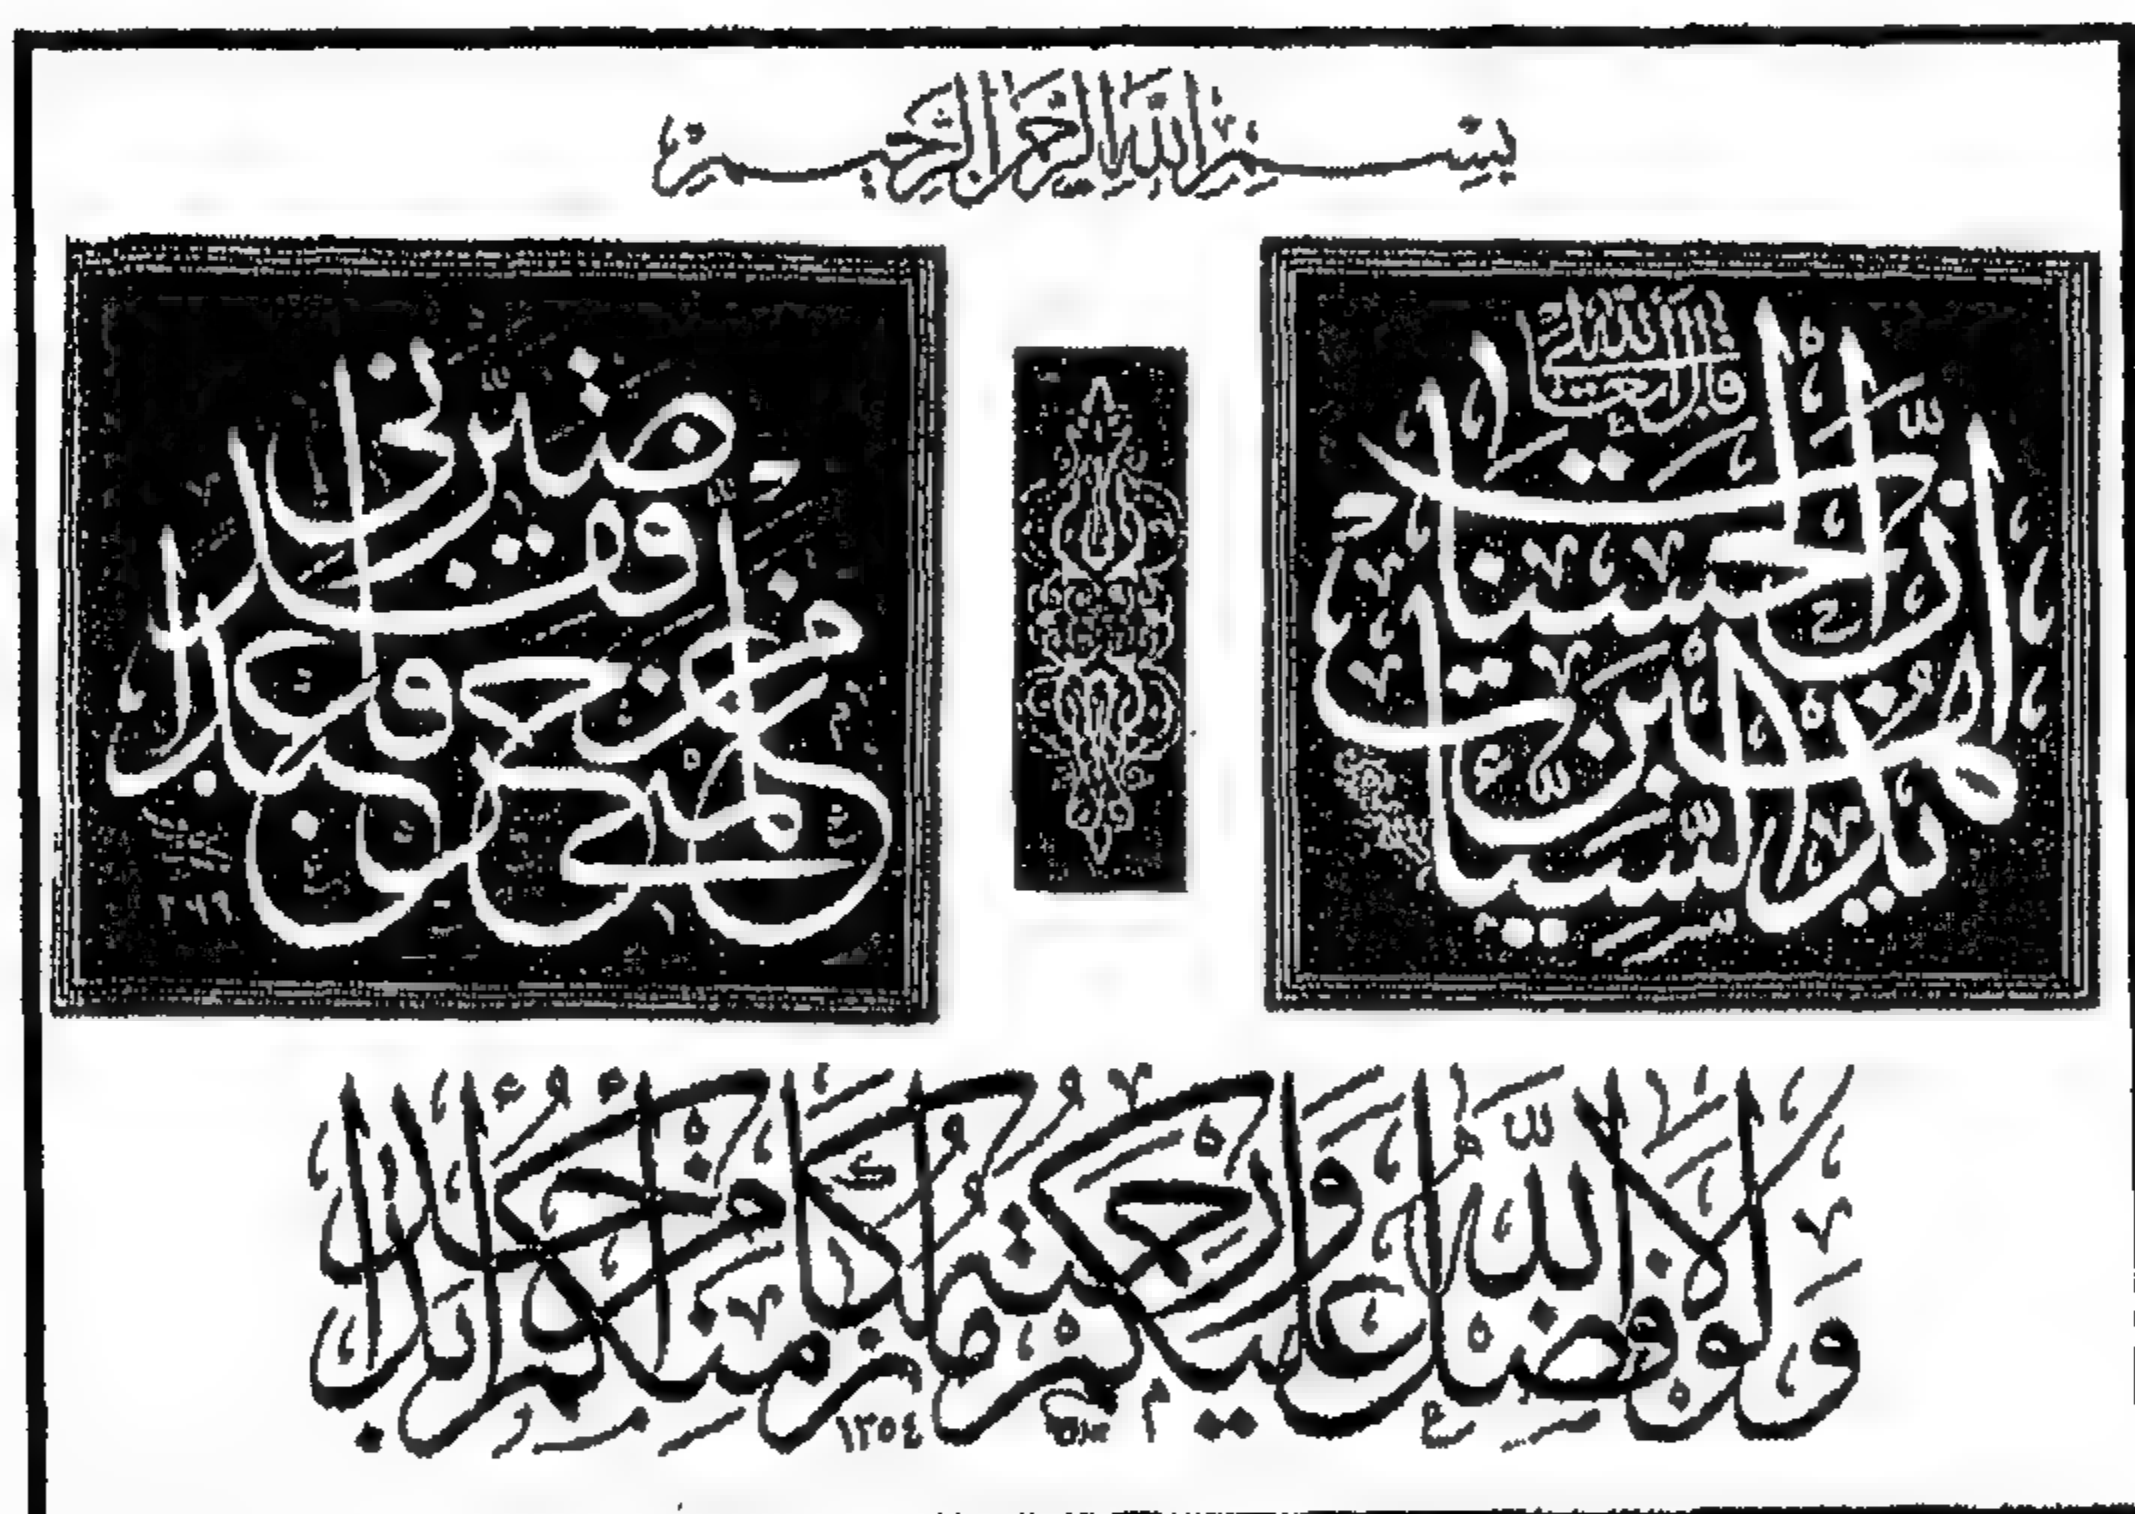 بسم الله الرحمن الرحيم
قال الله تعالى
إن الحسنات يذهبن السيئات
من علمني حرفا فقد صيرني عبدا
ولولا فضل الله عليكم ورحمته ما زكا منكم من أحد أبدا
١٣٥٤